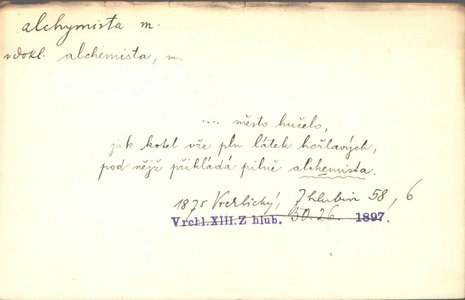 alchymista m.
v dokl. alchemista, m.
.... město hučelo,
jak kotel vře pln látek hořlavých,
pod nějž přikládá pilně alchemista.
1875 Vrchlický, Z hlubin 58, 6
Vrchl.XIII.Z hlub. 30.26. 1897.